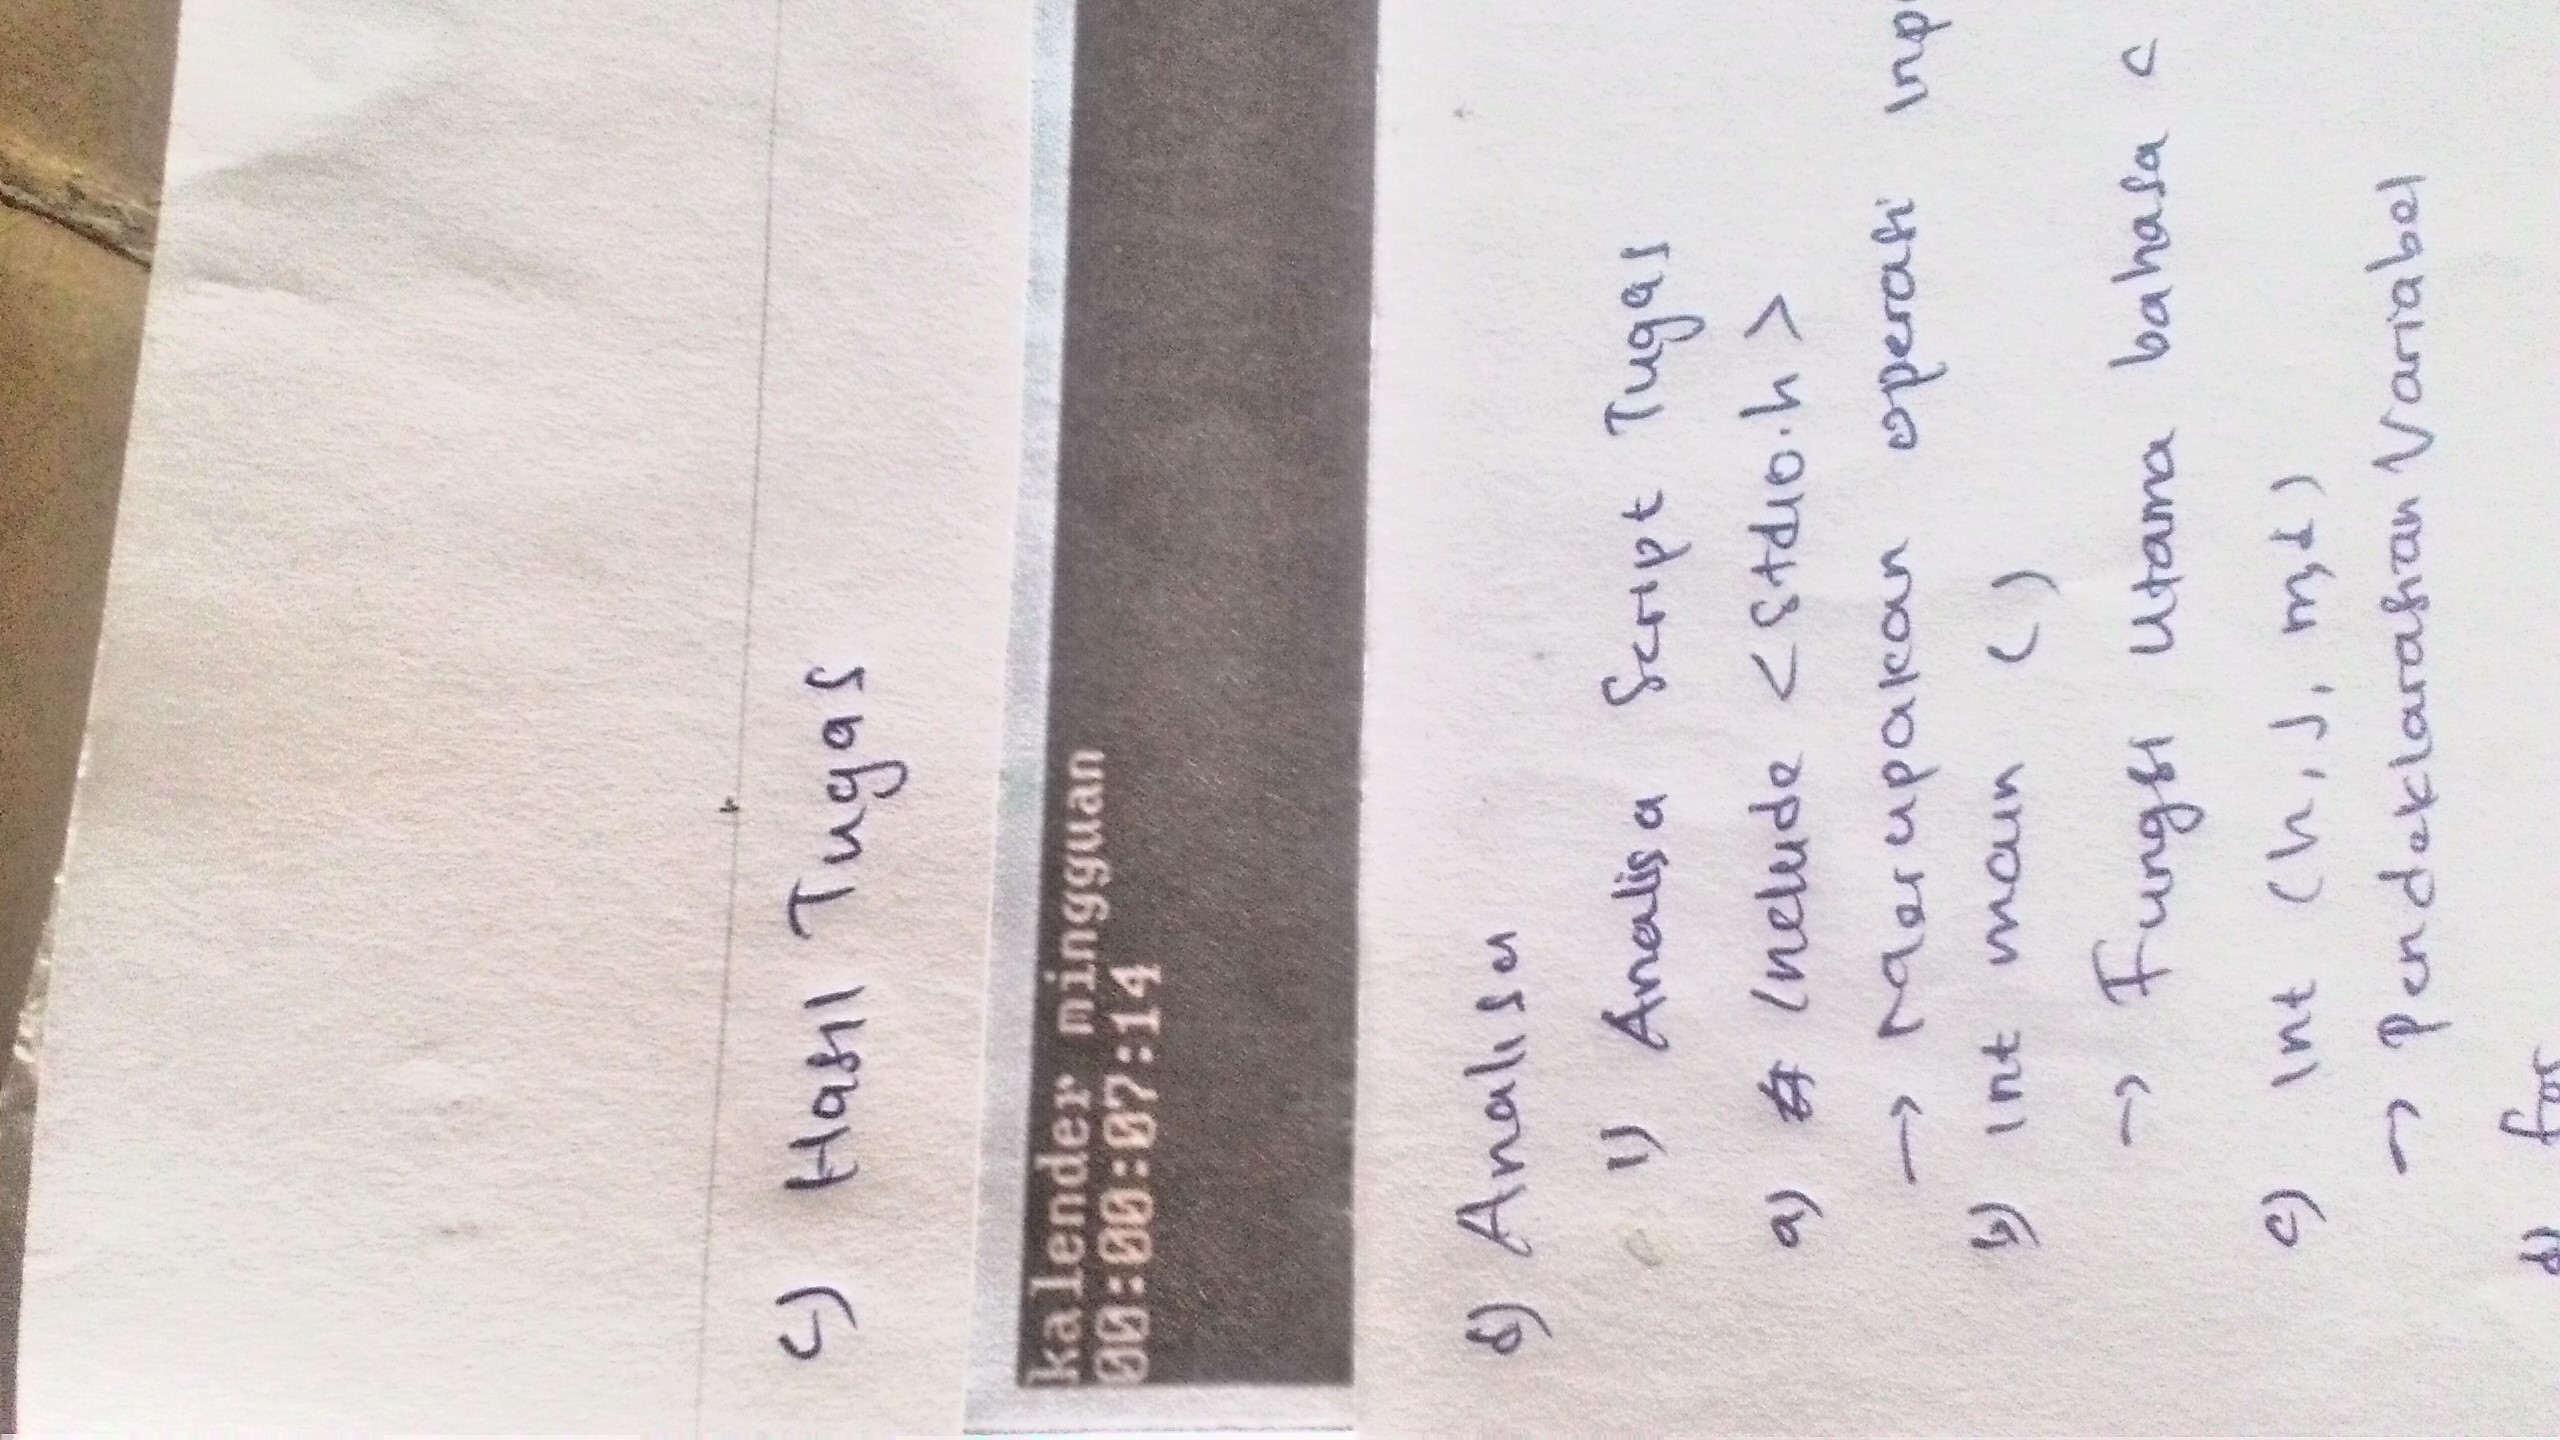 c) Hasil Tugas
kalender mingguan
00:00:07:14
d) Analisa
1) Analisa Script Tugas
a) # Include <stdio.h>
→ Merupakan operasi Inp
b) Int main ()
→ Fungsi Utama bahasa c
c) Int (h, j, m, d)
→ Pendeklarasian Variabel
d) for